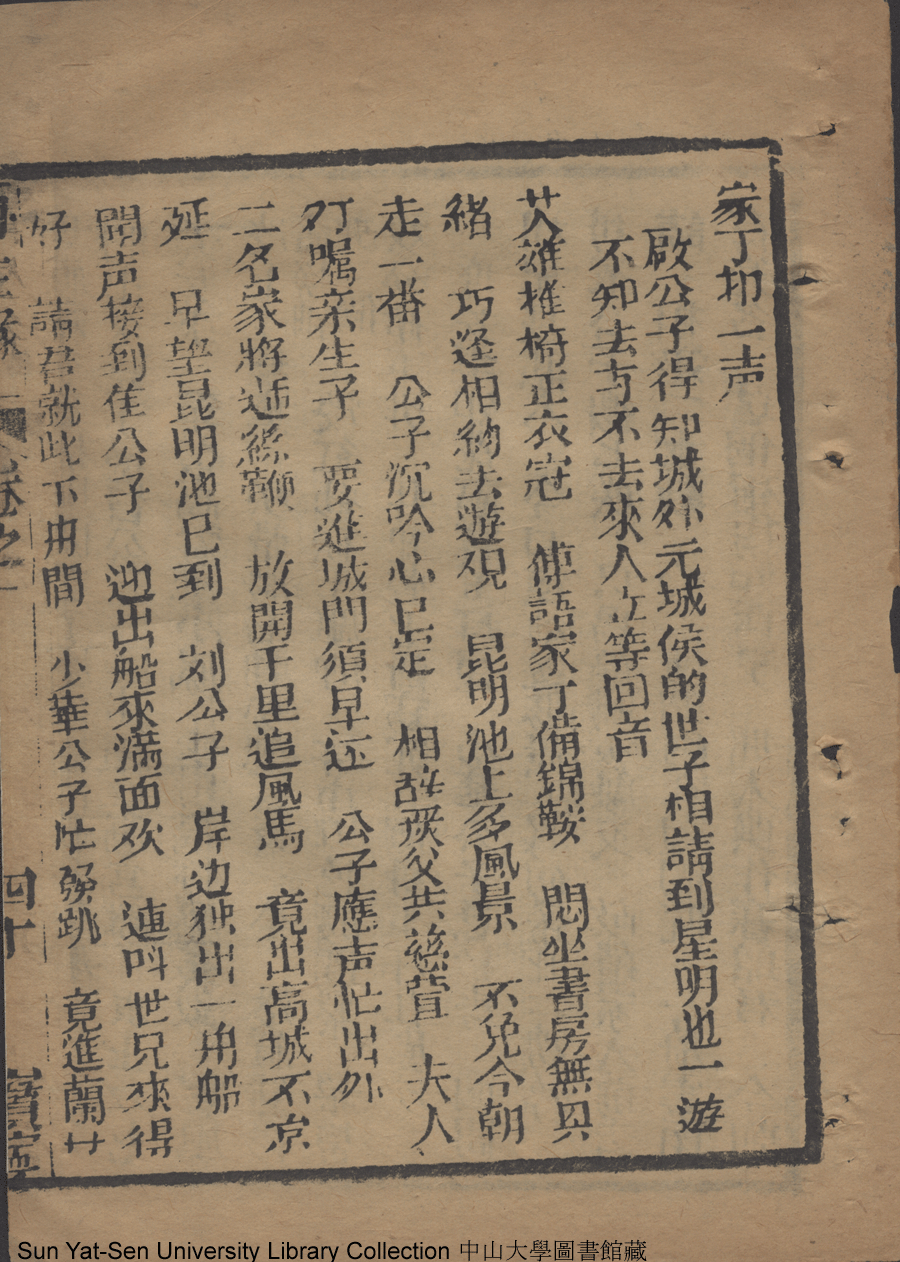 家丁抑一声
啟公子得知城外元城侯的世子相請到星明也一游
不知去与不去來人立等回音
英雄椎椅正衣冠　傳語家丁備錦鞍　悶坐書房無貝
緒　巧逢相約去遊玩　昆明池上多風景　不免今朝
走一番　公子沉吟心已定　相辞侯父共慈萱　夫人
叮嘱亲生子　要進城門須早还　公子應声忙出外
二名家將逓絲鞭　放開千里追風馬　竟出高城不京
延　早望昆明池已到　刘公子　岸边独出一舟船
聞声接到隹公子　迎出船來滿面欢　連叫世兄來得
好　請君就此下舟間　少華公子忙　跳　竟進蘭廾
卷之一
四十
寶寧
Sun Yat-Sen University Library Collection 中山大學圖書館藏